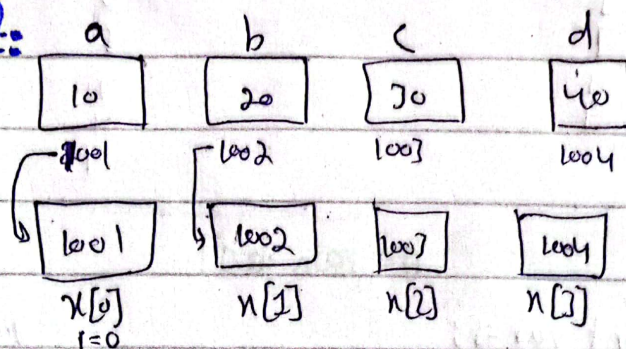 a b c d
10 20 30 40
1001 1002 1003 1004
1001 1002 1003 1004
x[0] x[1] x[2] x[3]
i=0